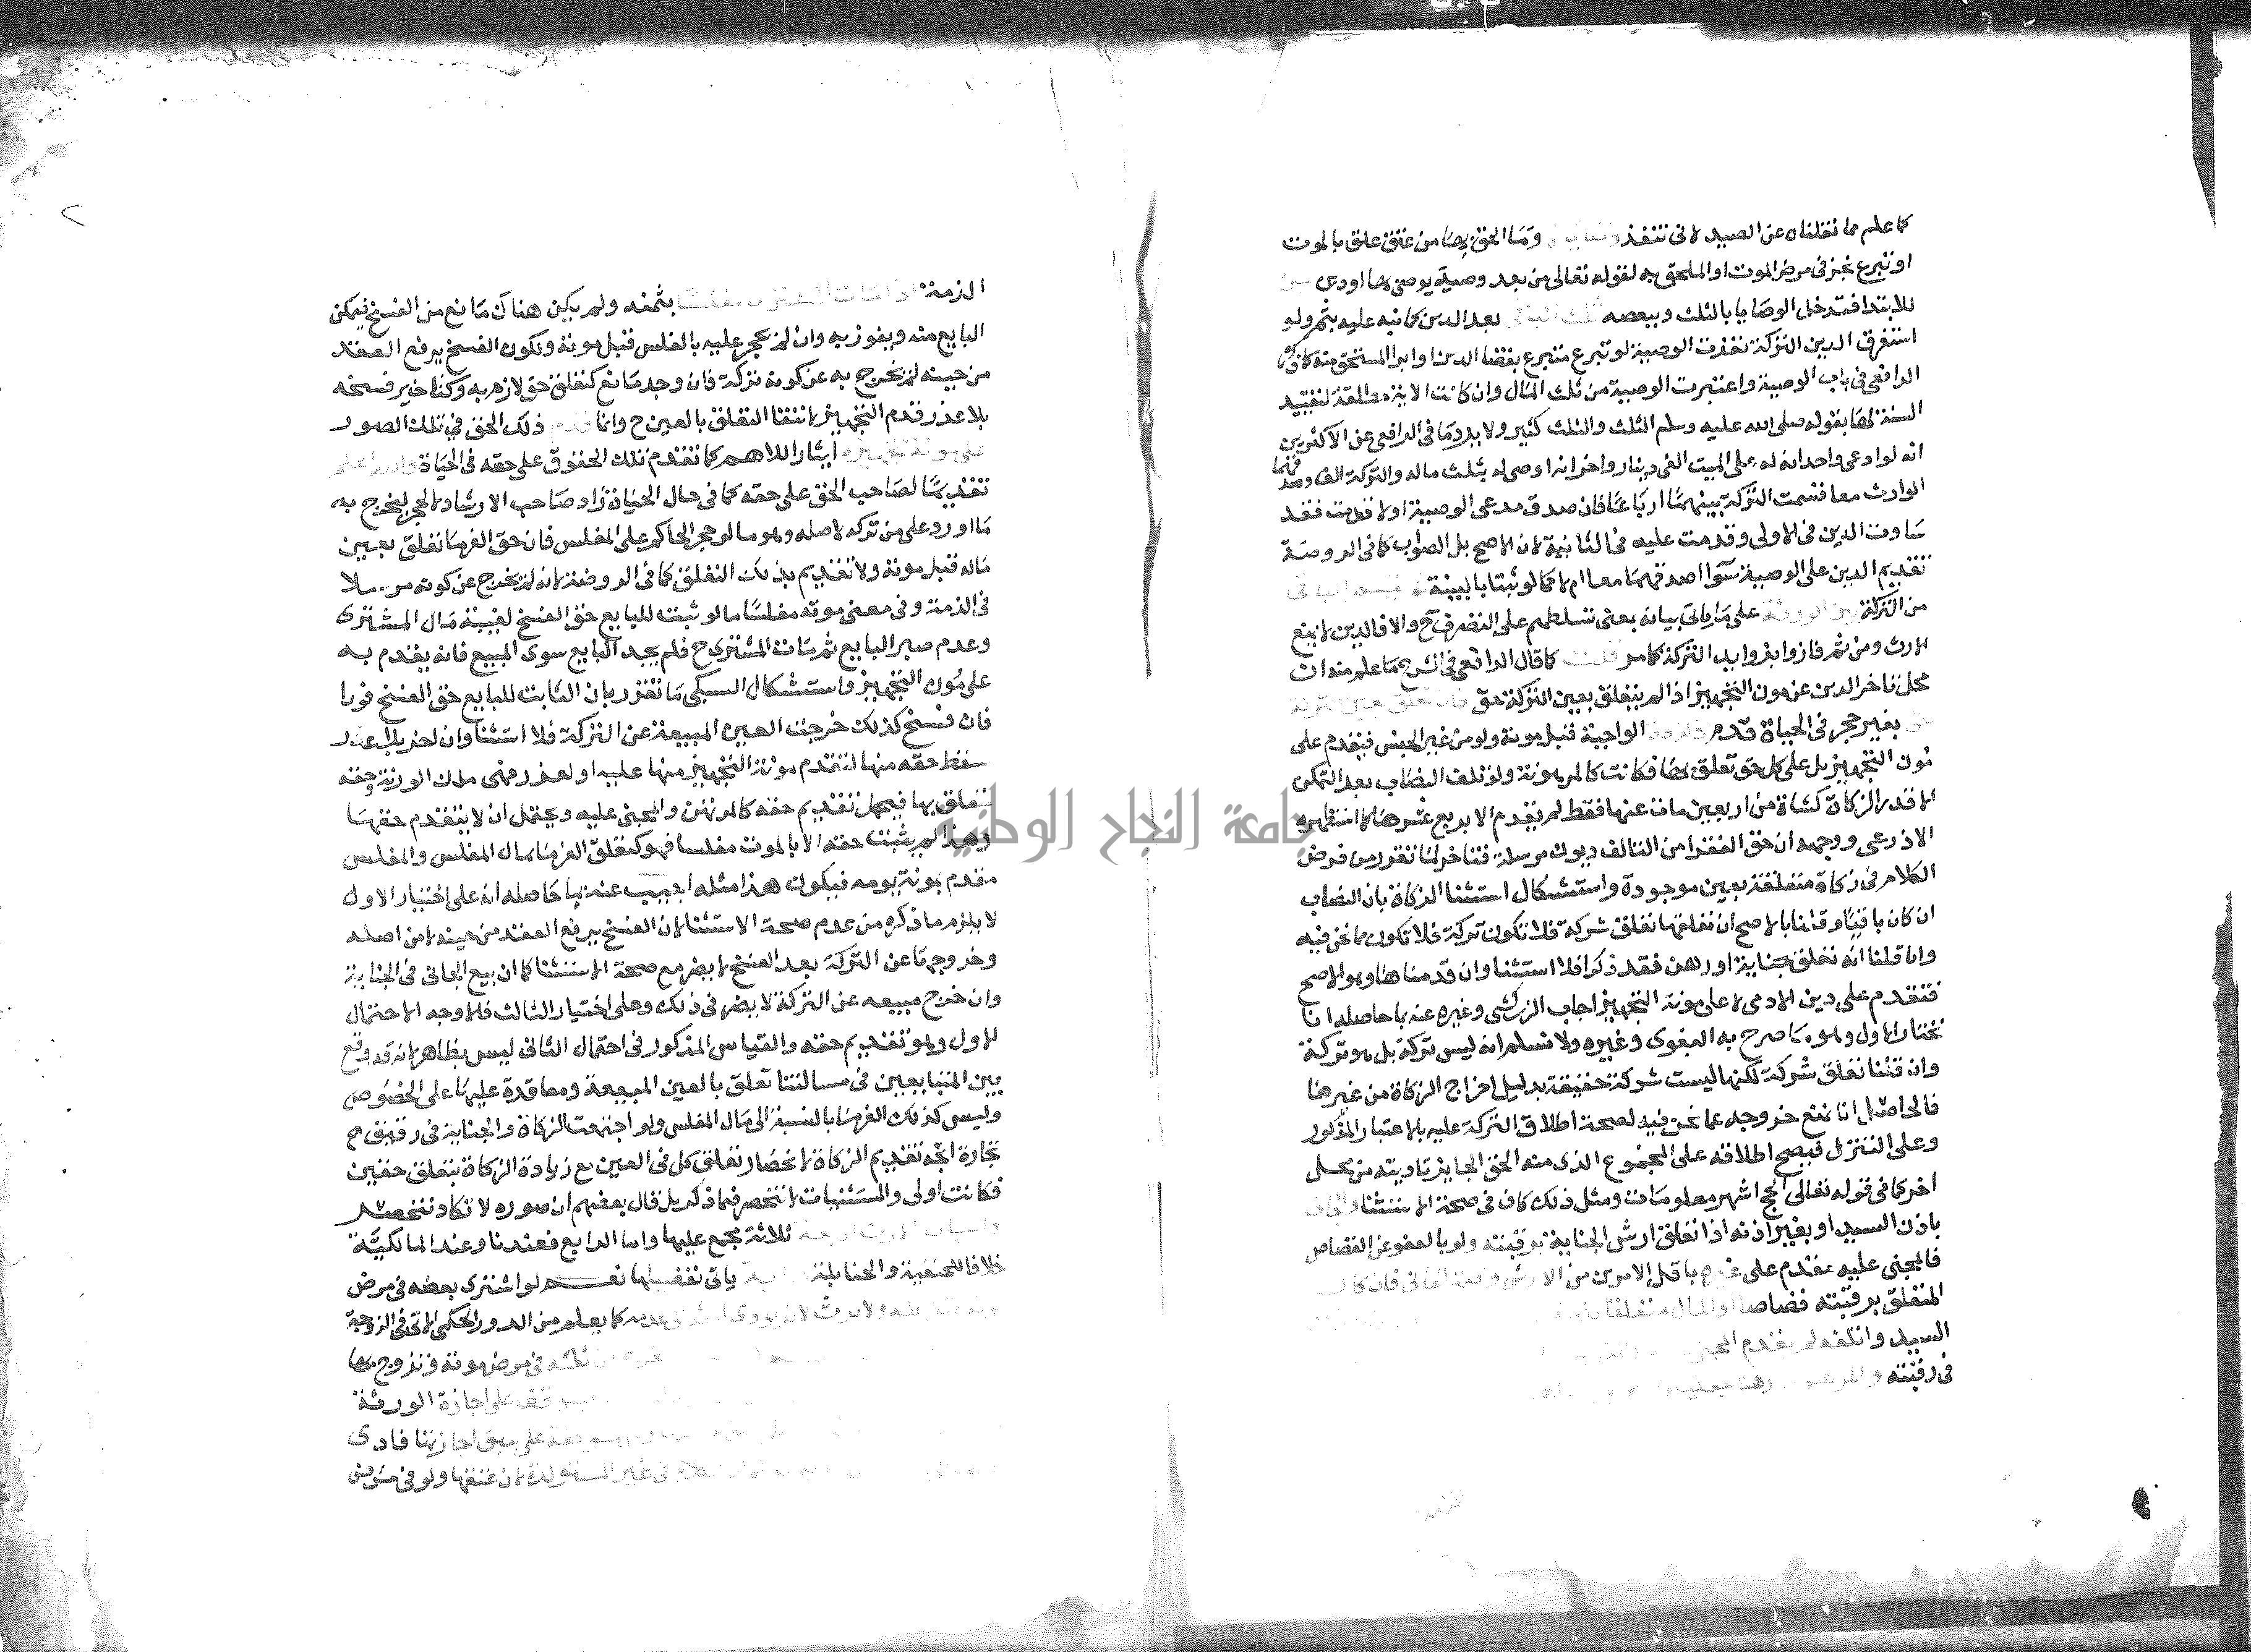 كما علم مما نقلناه عن الصيد لاني تنفذ وما الحق بها من عتق علق بالموت
او تبرع نجز في مرض الموت او الملحق به لقوله تعالى من بعد وصية يوصى بها او دين
للابتدا فتدخل الوصايا بالثلث وببعضه ثلث الباقي بعد الدين كما نبه عليه بثم ولو
استغرق الدين التركة نفذت الوصية لو تبرع متبرع بقضا الدين او ابرا المستحق منه كما ذكره
الرافعي في باب الوصية واعتبرت الوصية من ثلث المال وان كانت الاية مطلقة لتقييد
السنة لها بقوله صلى الله عليه وسلم الثلث والثلث كثير ولا يرد ما في الرافعي عن الاكثرين
انه لو ادعى واحد ان له على الميت الفي دينار واخر انه اوصى له بثلث ماله والتركة الف وصدقهما
الوارث معا قسمت التركة بينهما ارباعا فان صدق مدعي الوصية اولا قدمت فقد
ساوت الدين في الاولى وقدمت عليه في الثانية لان الاصح بل الصواب كما في الروضة
تقديم الدين على الوصية سوا اصدقهما معا ام لا كما لو ثبتا بالبينة
من التركة بين الورثة على ما ياتي بيانه بمعنى تسلطهم على التصرف ح والا فالدين لا يمنع
الارث ومن ثم فازوا بزوايد التركة كما مر قلت كما قال الرافعي في الشرح مما علم منه ان
محل تاخر الدين عن مون التجهيز اذا لم يتعلق بعين التركة حق فان تعلق بعين التركة
حق بغير حجر في الحياة قدم كالزكاة الواجبة قبل موته ولو من غير الجنس فيقدم على
مون التجهيز بل على كل حق تعلق بها فكانت كالمرهونة ولو تلف النصاب بعد التمكن
الا قدر الزكاة كشاة من اربعين مات عنها فقط لم يقدم الا بربع عشرها كما استظهره
الاذرعي ووجهه ان حق الفقرا من التالف ديون مرسلة فتاخر لما تقرر من فرض
الكلام في زكاة متعلقة بعين موجودة واستشكال استثنا الزكاة بان النصاب
ان كان باقيا وقلنا بالاصح ان تعلقها تعلق شركة فلا تكون تركة فلا تكون مما نحن فيه
وان قلنا انه تعلق جناية او رهن فقد ذكرا فلا استثنا وان قدمناها وهو الاصح
فتقدم على دين الادمي لا على مونة التجهيز اجاب الزركشي وغيره عنه بما حاصله انا
نختار الاول وهو ما صرح به البغوي وغيره ولا نسلم انه ليس تركة بل هو تركة
وان قلنا تعلق شركة لكنها ليست شركة حقيقة بدليل اخراج الزكاة من غيرها
فالحاصل انا نمنع خروجه عما نحن فيه لصحة اطلاق التركة عليه بالاعتبار المذكور
وعلى التنزل فيصح اطلاقه على المجموع الذي منه الحق الجايز تاديته من محل
اخر كما في قوله تعالى الحج اشهر معلومات ومثل ذلك كاف في صحة الاستثنا والجاني
باذن السيد او بغير اذنه اذا تعلق ارش الجناية برقبته ولو بالعفو عن القصاص
فالمجني عليه مقدم على غيره باقل الامرين من الارش وقيمة الجاني فان كان
المتعلق برقبته قصاصا او المال متعلقا
السيد واتلفه لم يقدم المجني
في رقبته والمرهون رهنا جعليا
اللزمة
الزمة اذا مات المشتري مفلسا بثمنه ولم يكن هناك مانع من الفسخ فيمكن
البايع منه ويفوز به وان لم يحجر عليه بالفلس قبل موته وتكون الفسخ يرفع العقد
من حينه لم يخرج به عن كونه تركة فان وجد مانع كتعلق حق لازم به وكتاخير فسخه
بلا عذر قدم التجهيز لانتفا التعلق بالعين ح وانما قدم ذلك الحق في تلك الصور
على مونة تجهيزه ايثارا للاهم كما تقدم تلك الحقوق على حقه في الحياة والله اعلم
تقديما لصاحب الحق على حقه كما في حال الحياة زاد صاحب الارشاد لا لحجر ليخرج به
ما اورد على من تركه لاصله وهو ما لو حجر الحاكم على المفلس فان حق الغرما تعلق بعين
ماله قبل موته ولا تقديم بذلك التعلق كما في الروضة لانه لم يخرج عن كونه مرسلا
في الذمة وفي معنى موته مفلسا ما لو ثبت للبايع حق الفسخ لغيبة مال المشتري
وعدم صبر البايع ثم مات المشتري ح فلم يجد البايع سوى المبيع فانه يقدم به
على مون التجهيز واستشكال السبكي ما تقرر بان الثابت للبايع حق الفسخ فورا
فان فسخ كذلك خرجت العين المبيعة عن التركة فلا استثنا وان اخر بلا عذر
سقط حقه منها لتقدم مونة التجهيز منها عليه او لعذر فهي ملك الورثة وحقه
تعلق بها فيحمل تقديم حقه كالمرتهن والمجني عليه ويحتمل ان لا يتقدم حقها
وهذا لم يثبت حقه الا بالموت مفلسا فهو كتعلق الغرما بمال المفلس والمفلس
مقدم بمونة يومه فيكون هذا مثله اجيب عنه بما حاصله انه على اختيار الاول
لا يلزم ما ذكره من عدم صحة الاستثنا لان الفسخ يرفع العقد من حينه لا من اصله
وخروجها عن التركة بعد الفسخ لا يضر مع صحة الاستثنا كما ان بيع الجاني في الجناية
وان خرج مبيعه عن التركة لا يضر في ذلك وعلى اختيار الثالث فالاوجه الاحتمال
الاول وهو تقديم حقه والقياس المذكور في احتمال الثاني ليس بظاهر لانه قد وقع
بين المتبايعين في مسالتنا تعلق بالعين المبيعة ومعاقدة عليها على الخصوص
وليس كذلك الغرما بالنسبة الى مال المفلس ولو اجتمعت الزكاة والجناية في رقيق
تجارة اتجه تقديم الزكاة لانحصار تعلق كل في العين مع زيادة الزكاة بتعلق حقين
فكانت اولى والمستثنيات لا تنحصر فيما ذكر بل قال بعضهم ان صوره لا تكاد تنحصر
واسباب الارث اربعة ثلاثة مجمع عليها واما الرابع فعندنا وعند المالكية
خلافا للحنفية والحنابلة ياتي تفصيلها نعم لو اشترى بعضه في مرض
موته عتق عليه ولا يرث لانه يودي ارثه الى عدمه كما يعلم من الدور الحكمي الاتي في الزوجية
ثلثه في مرض موته وتزوج بها
يتوقف على اجازة الورثة
على سبق اجازتها فادى
في غير المستولدة لان عتقها ولو في مرض
جامعة النجاح الوطنية